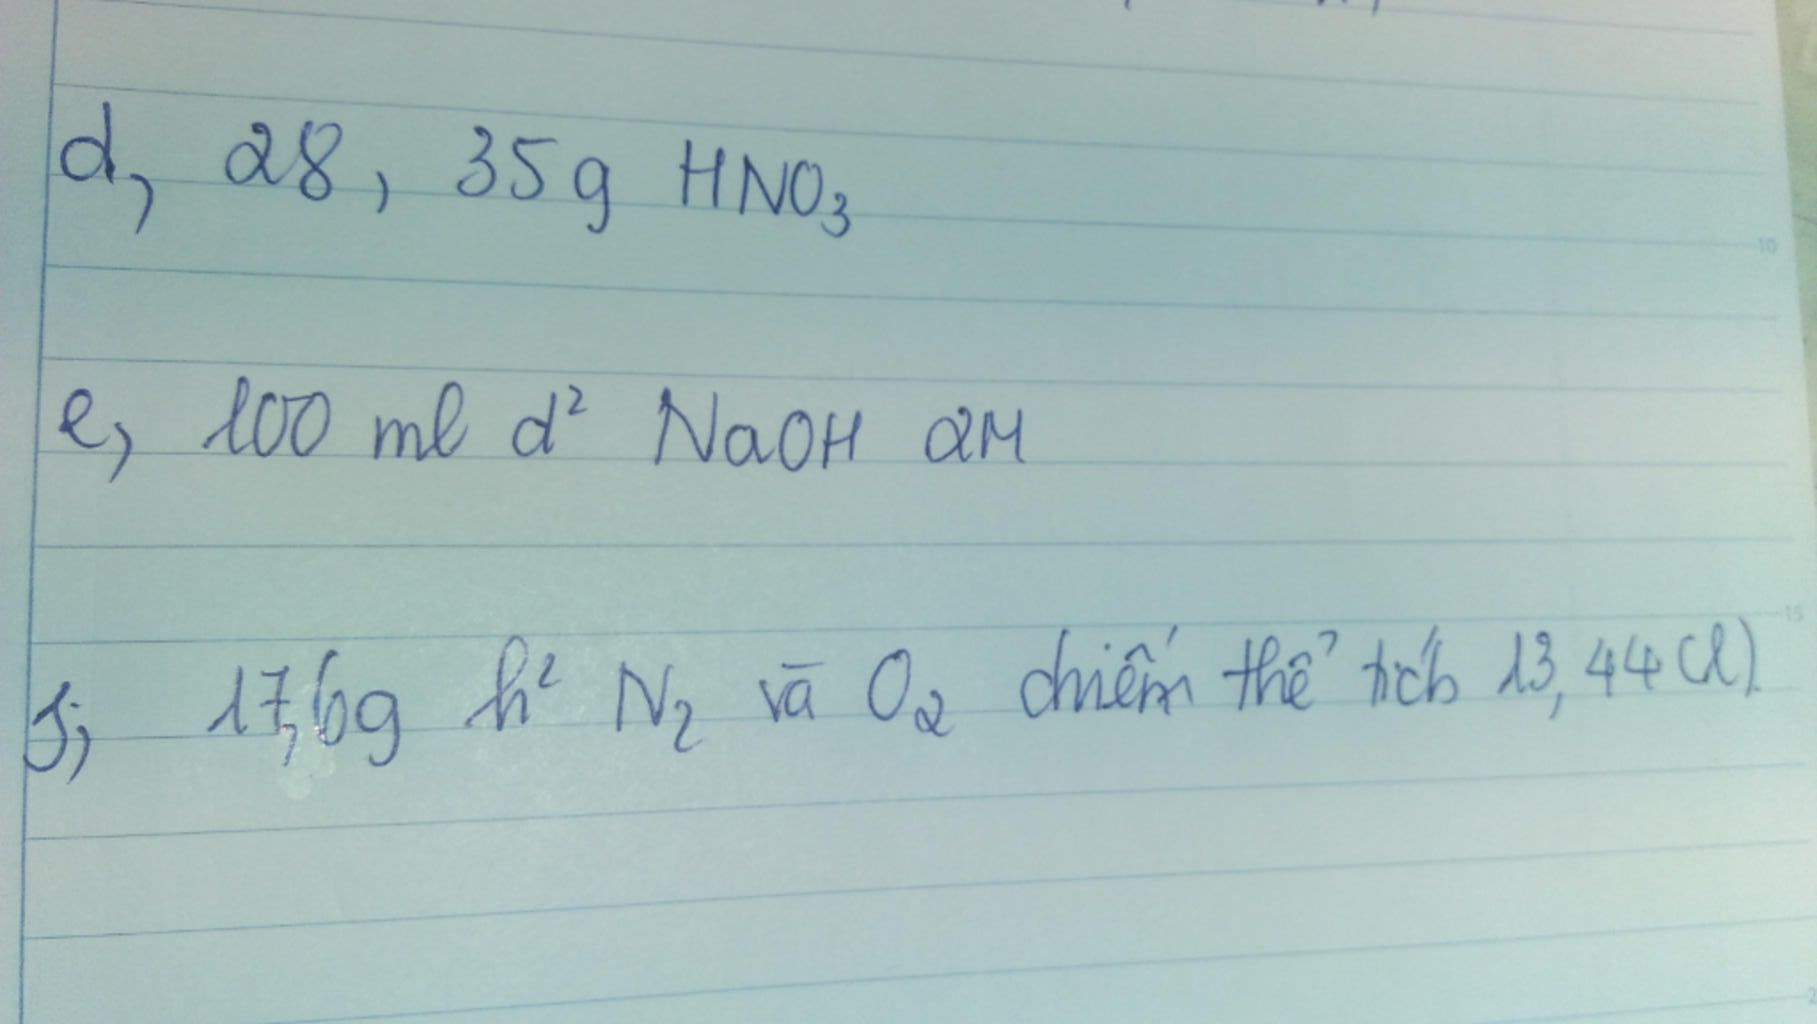 d, 28, 35g HNO₃
e, 100 ml d² NaOH 2M
f, 17,6g h² N₂ và O₂ chiếm thể tích 13,44 (l).
10
15